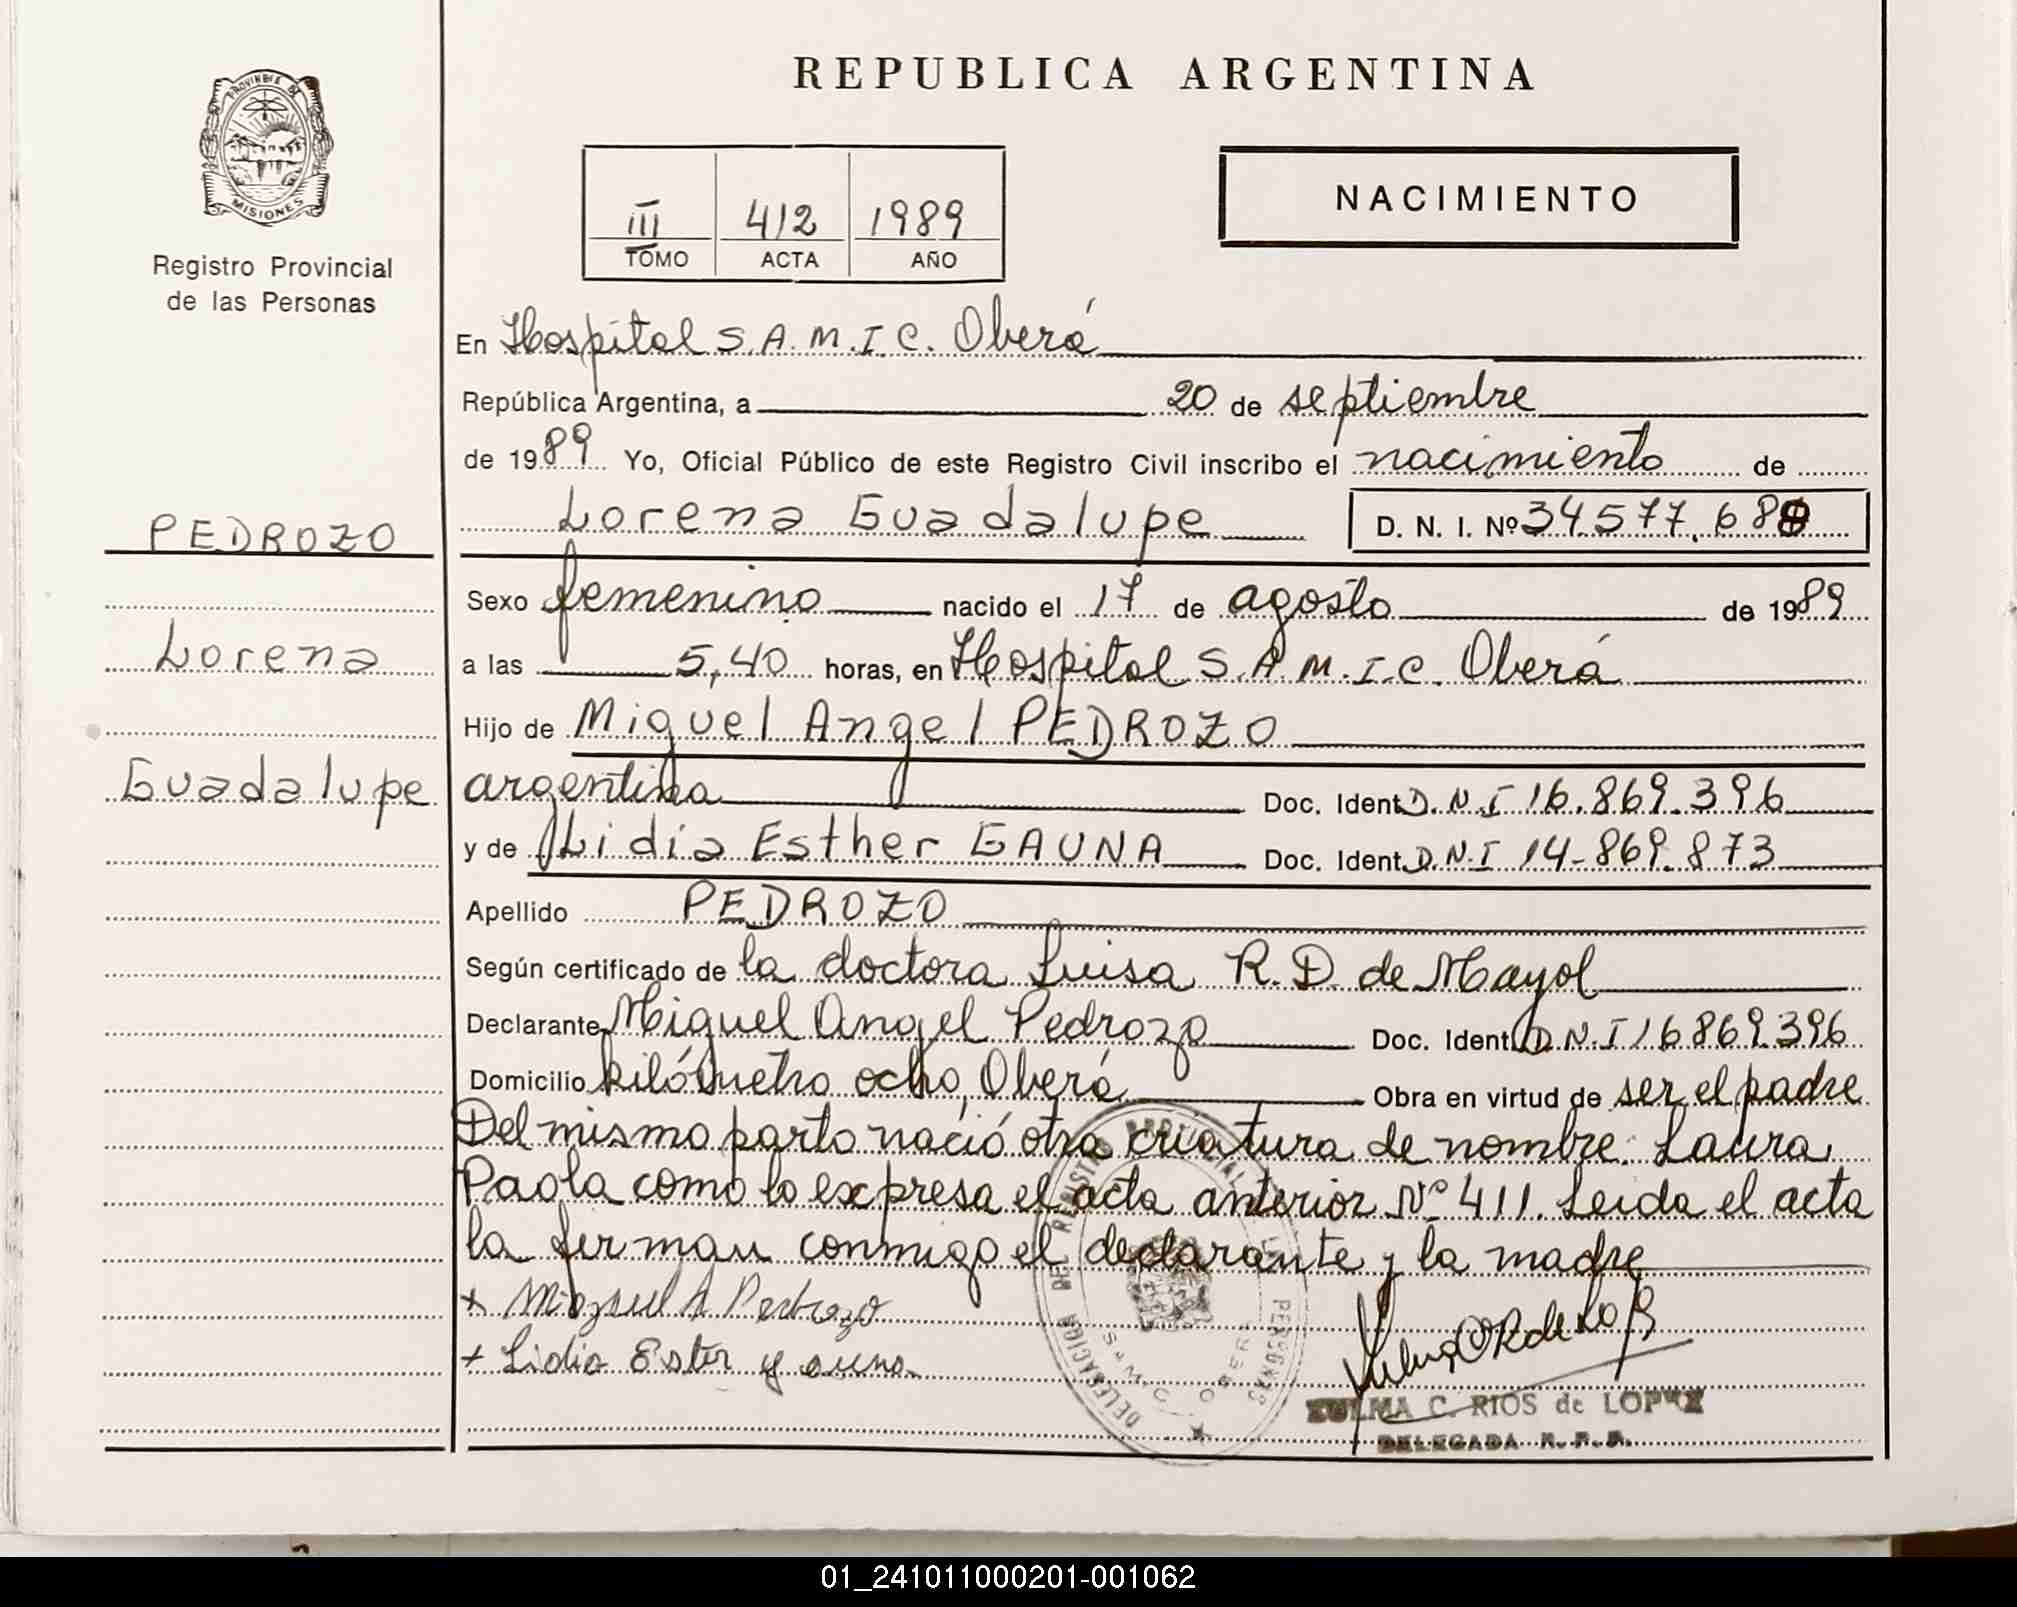 REPUBLICA ARGENTINA
PROVINCIA DE
MISIONES
Registro Provincial
de las Personas
III 412 1989
TOMO ACTA AÑO
NACIMIENTO
En Hospital S.A.M.I.C. Oberá
República Argentina, a 20 de septiembre
de 1989 Yo, Oficial Público de este Registro Civil inscribo el nacimiento de
PEDROZO
Lorena Guadalupe D. N. I. Nº 34.577.68
Sexo femenino nacido el 17 de agosto de 1989
Lorena
a las 5,40 horas, en Hospital S.A.M.I.C. Oberá
Hijo de Miguel Angel PEDROZO
Guadalupe
argentina Doc. Ident. D.N.I 16.869.396
y de Lidia Esther GAUNA Doc. Ident. D.N.I 14-869.873
Apellido PEDROZO
Según certificado de la doctora Luisa R.D. de Mayol
Declarante Miguel Angel Pedrozo Doc. Ident. D.N.I 16869.396
Domicilio kilómetro ocho, Oberá Obra en virtud de ser el padre
Del mismo parto nació otra criatura de nombre: Laura
Paola como lo expresa el acta anterior Nº 411. Leida el acta
la firman conmigo el declarante y la madre
+ Miguel A Pedrozo
+ Lidia Ester gauna
DELEGACION DEL REGISTRO PROVINCIAL PERSONAS
ZULMA C. RIOS de LOPEZ
DELEGADA R.P.P.
01_241011000201-001062